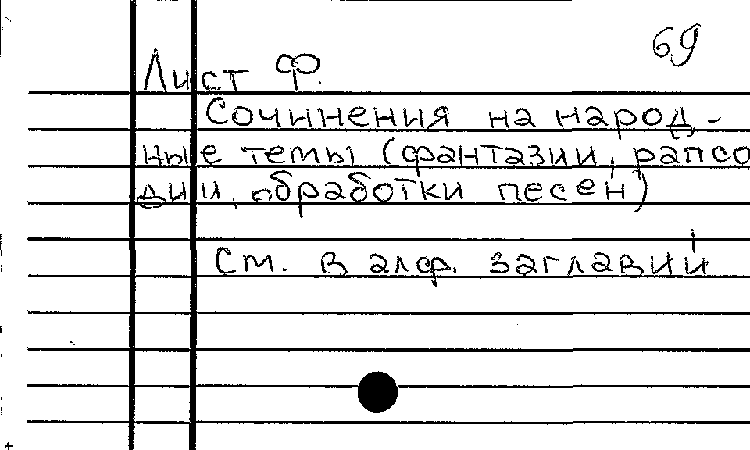 69
Лист Ф.
Сочинения на народ-
ные темы (фантазии, рапсо
дии, обработки песен)
См. в алф. заглавий